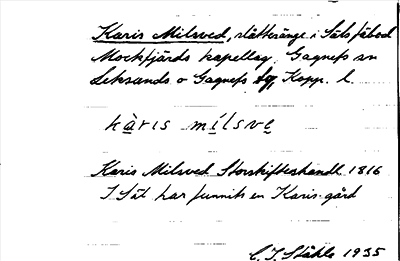 Karis Milsved, slätteränge i Säts fäbod
Mockfjärds kapellag, Gagnefs sn
Leksands o Gagnefs tg, Kopp. l.
kàris mílsve
Karis Milsved Storskifteshandl. 1816
I Sät har funnits en Karis-gård
C. I. Ståhle 1935